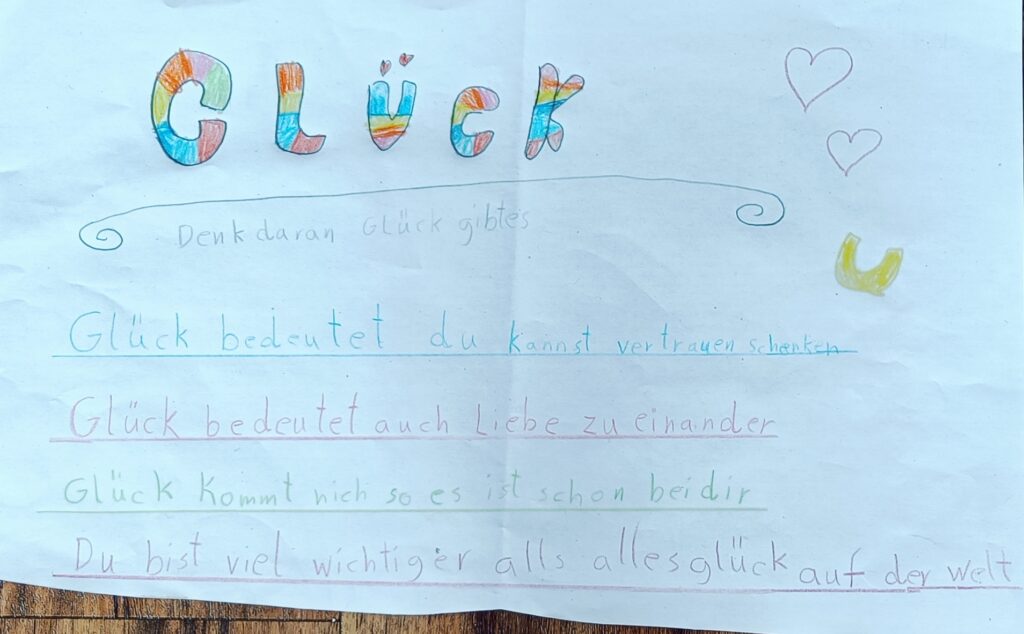 GLücK
Denk daran Glück gibtes
Glück bedeutet du kannst vertrauen schenken
Glück bedeutet auch Liebe zu einander
Glück kommt nich so es ist schon bei dir
Du bist viel wichtiger alls alles glück auf der welt